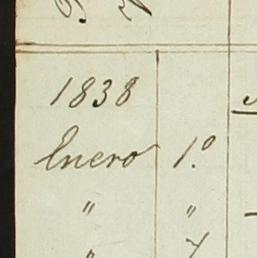 1838
Enero 1.º
" "
" 7